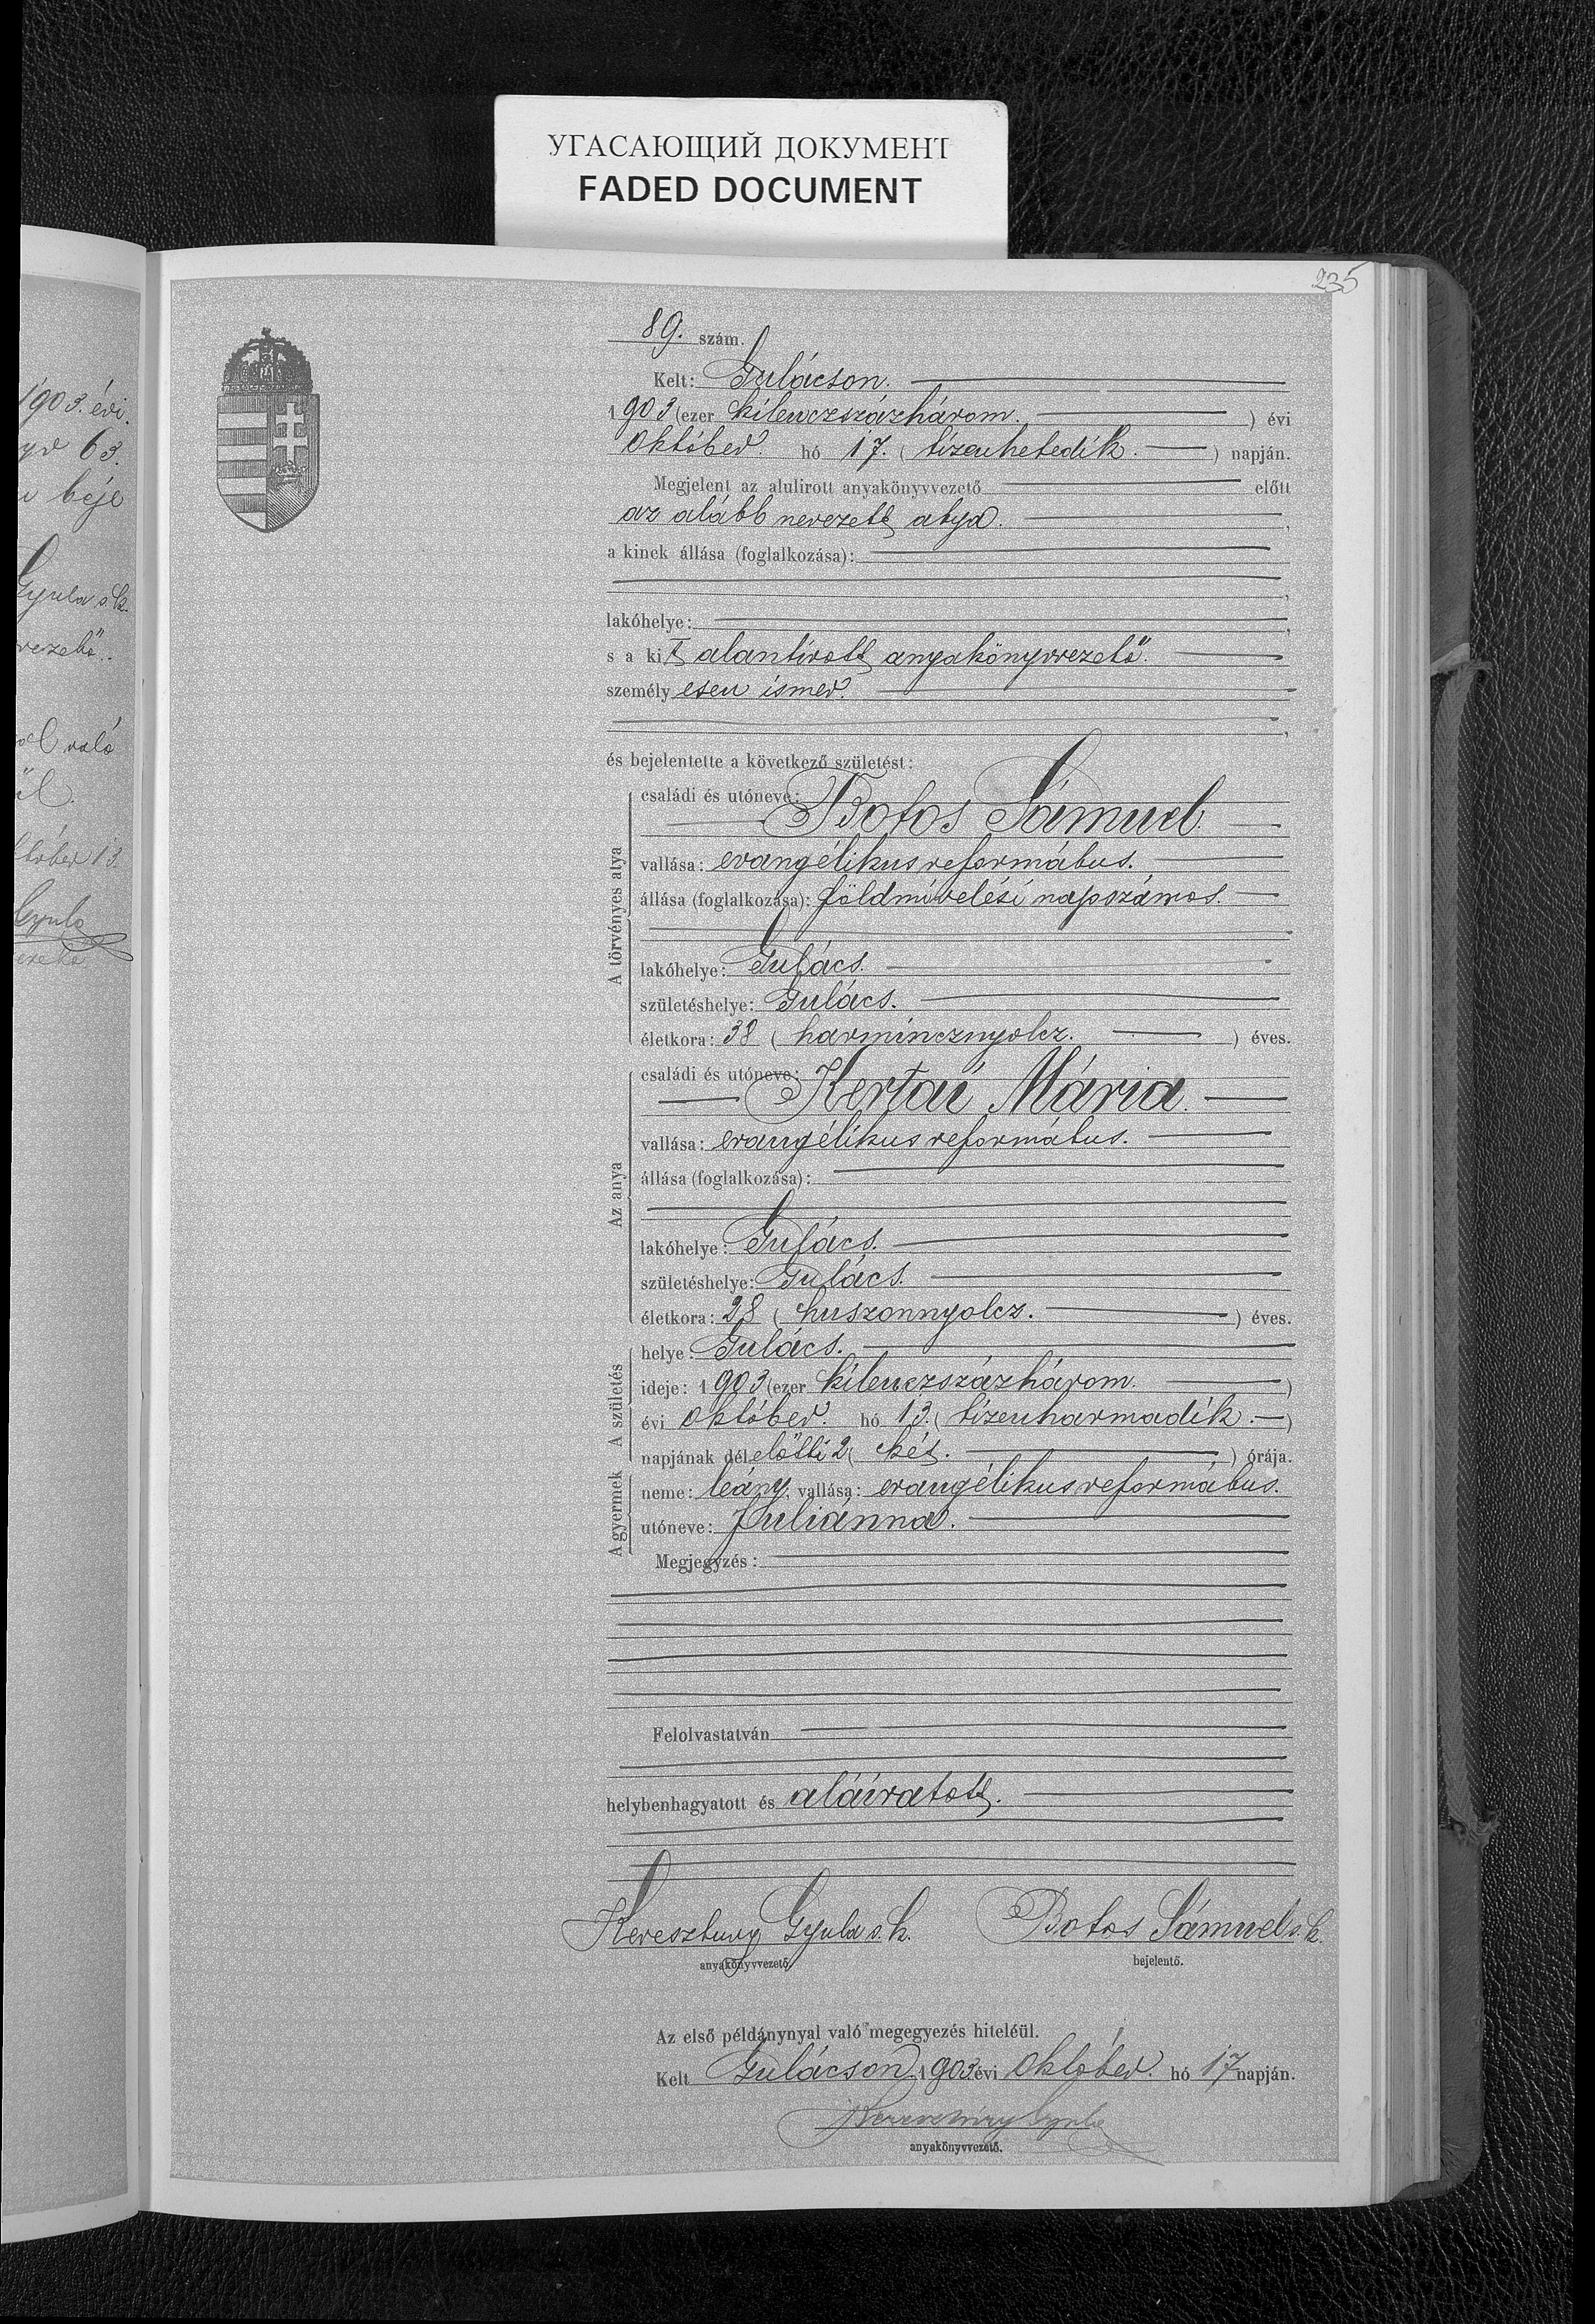 УГАСАЮЩИЙ ДОКУМЕНТ
FADED DOCUMENT
235
1903. évi
63.
béje
Gyula s.k.
vezető.
való
ül.
któber 13
Gyula
89. szám.
Kelt: Gulácson.
1903 (ezer kilenczszázhárom.) évi
október. hó 17. (tizenhetedik.) napján.
Megjelent az alulirott anyakönyvvezető előtt
az alább nevezett atya.
a kinek állása (foglalkozása):
lakóhelye:
s a kit alantirott anyakönyvvezető.
személyesen ismer.
és bejelentette a következő születést:
A törvényes atya
családi és utóneve:
Botos Sámuel.
vallása: evangélikus református.
állása (foglalkozása): földmívelési napszámos.
lakóhelye: Gulács.
születéshelye: Gulács.
életkora: 38 (harmincznyolcz.) éves.
Az anya
családi és utóneve:
Kertai Mária.
vallása: evangélikus református.
állása (foglalkozása):
lakóhelye: Gulács.
születéshelye: Gulács.
életkora: 28 (huszonnyolcz.) éves.
A születés
helye: Gulács.
ideje: 1903 (ezer kilenczszázhárom.)
évi október. hó 13. (tizenharmadik.)
napjának délelőtti 2 (két.) órája.
A gyermek
neme: leány, vallása: evangélikus református.
utóneve: Juliánna.
Megjegyzés:
Felolvastatván
helybenhagyatott és aláíratott.
Keresztury Gyula s.k. Botos Sámuel s.k.
anyakönyvvezető. bejelentő.
Az első példánynyal való megegyezés hiteléül.
Kelt Gulácson 1903 évi október. hó 17 napján.
Keresztúry Gyula
anyakönyvvezető.